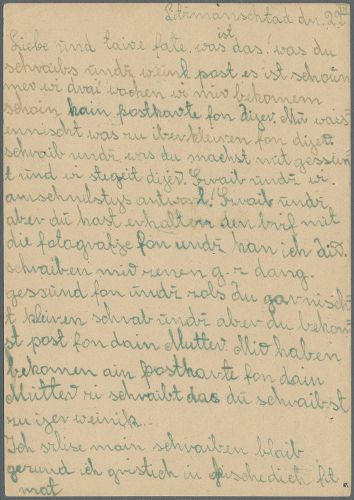 Litzmanschtad dn. 29/VIII
Liebe und taire fate. was ist das! was du
schraibs undz weink post es ist schoin
mer wi drai wochen wi mir bekomem
schoin kain postkarte fon diyer. Mir waes
ennischt was zu iberkleren fon diyer.
schraib undz was du machst mit gessun
t und wi stegeit diyer. Schraib undz wi
amschnelstys antword. Schraib undz
aber du hast erhalten den brif mit
die fotografize fon undz kan ich dir
schraiben mir zenen g. z dang
gessund fon undz zols du garnisch
t kleiren schrab undz aber du bekom
st post fon dain Mutter. Mir haben
bekomen ain postkarte fon dain
Mutter zi schraibt das du schraibst
zu izer weinik.
Ich schlise main schraiben blaib
gezund ich gristich in kische dich fil
mal